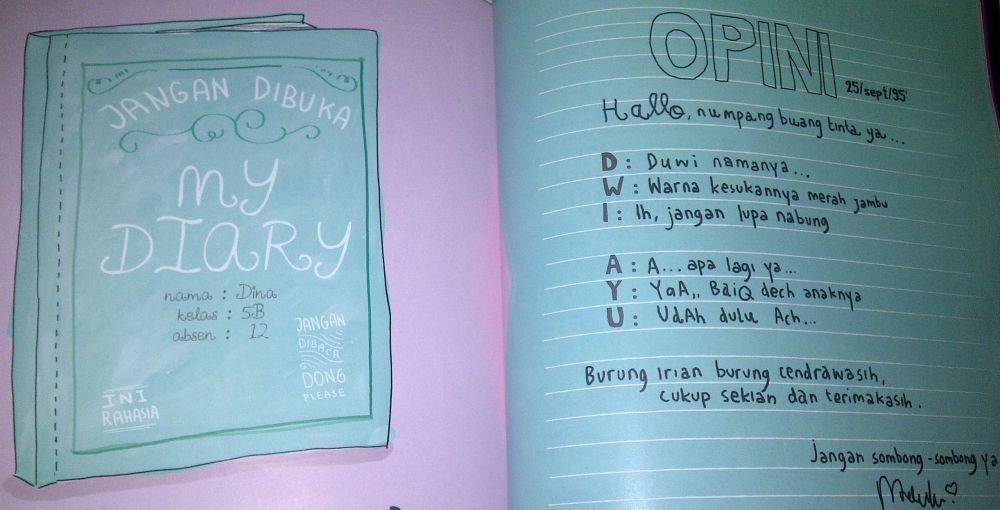 JANGAN DIBUKA
MY
DIARY
nama : Dina
kelas : 5B
absen : 12
JANGAN
DIBACA
DONG
PLEASE
INI
RAHASIA
OPINI
25/sept/95'
Hallo, numpang buang tinta ya...
D : Duwi namanya...
W : Warna kesukannya merah jambu
I : Ih, jangan lupa nabung
A : A... apa lagi ya...
Y : YaA,, BaiQ dech anaknya
U : UdAh dulu Ach...
Burung irian burung cendrawasih,
cukup sekian dan terimakasih.
Jangan sombong-sombong ya